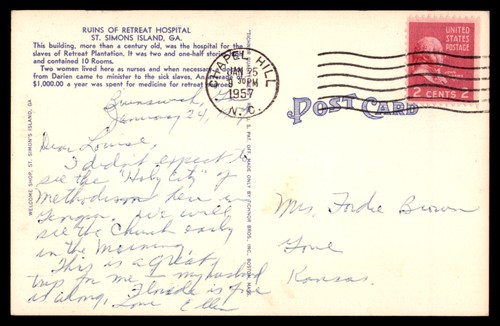 RUINS OF RETREAT HOSPITAL
ST. SIMONS ISLAND, GA.
This building, more than a century old, was the hospital for the
slaves of Retreat Plantation. It was two and one-half stories
and contained 10 Rooms.
Two women lived here as nurses and when necessary
from Darien came to minister to the sick slaves. An
$1,000.00 a year was spent for medicine for retreat
Brunswick, Ga.
January 24,
Dear Louise,
I didn't expect to
see the "Holy City" of
Methodism here in
Georgia. We will
see the Church early
in the morning.
This is a great
trip for me & my husband
is along. Floride is fine
Love Ellen
WELCOME SHOP, ST. SIMON'S ISLAND, GA
CHAPEL HILL
JAN 25
30PM
1957
N.C.
UNITED
STATES
POSTAGE
2 CENTS 2
POST CARD
Mrs. Fordie Brown
Gove
Kansas.